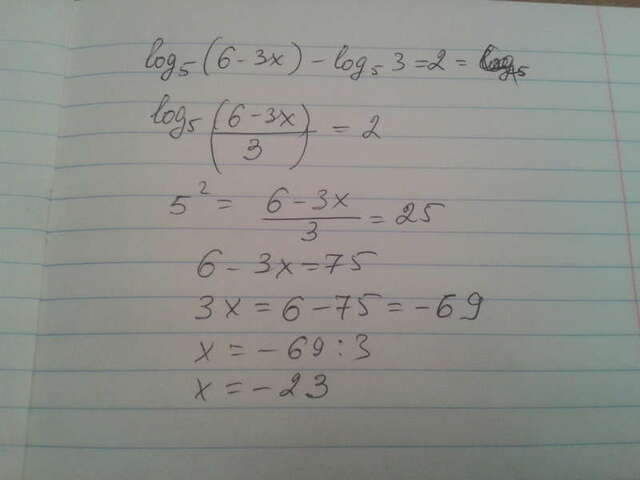 log₅(6-3x) - log₅3 = 2 =
log₅((6-3x)/3) = 2
5² = (6-3x)/3 = 25
6-3x=75
3x = 6-75 = -69
x = -69:3
x = -23